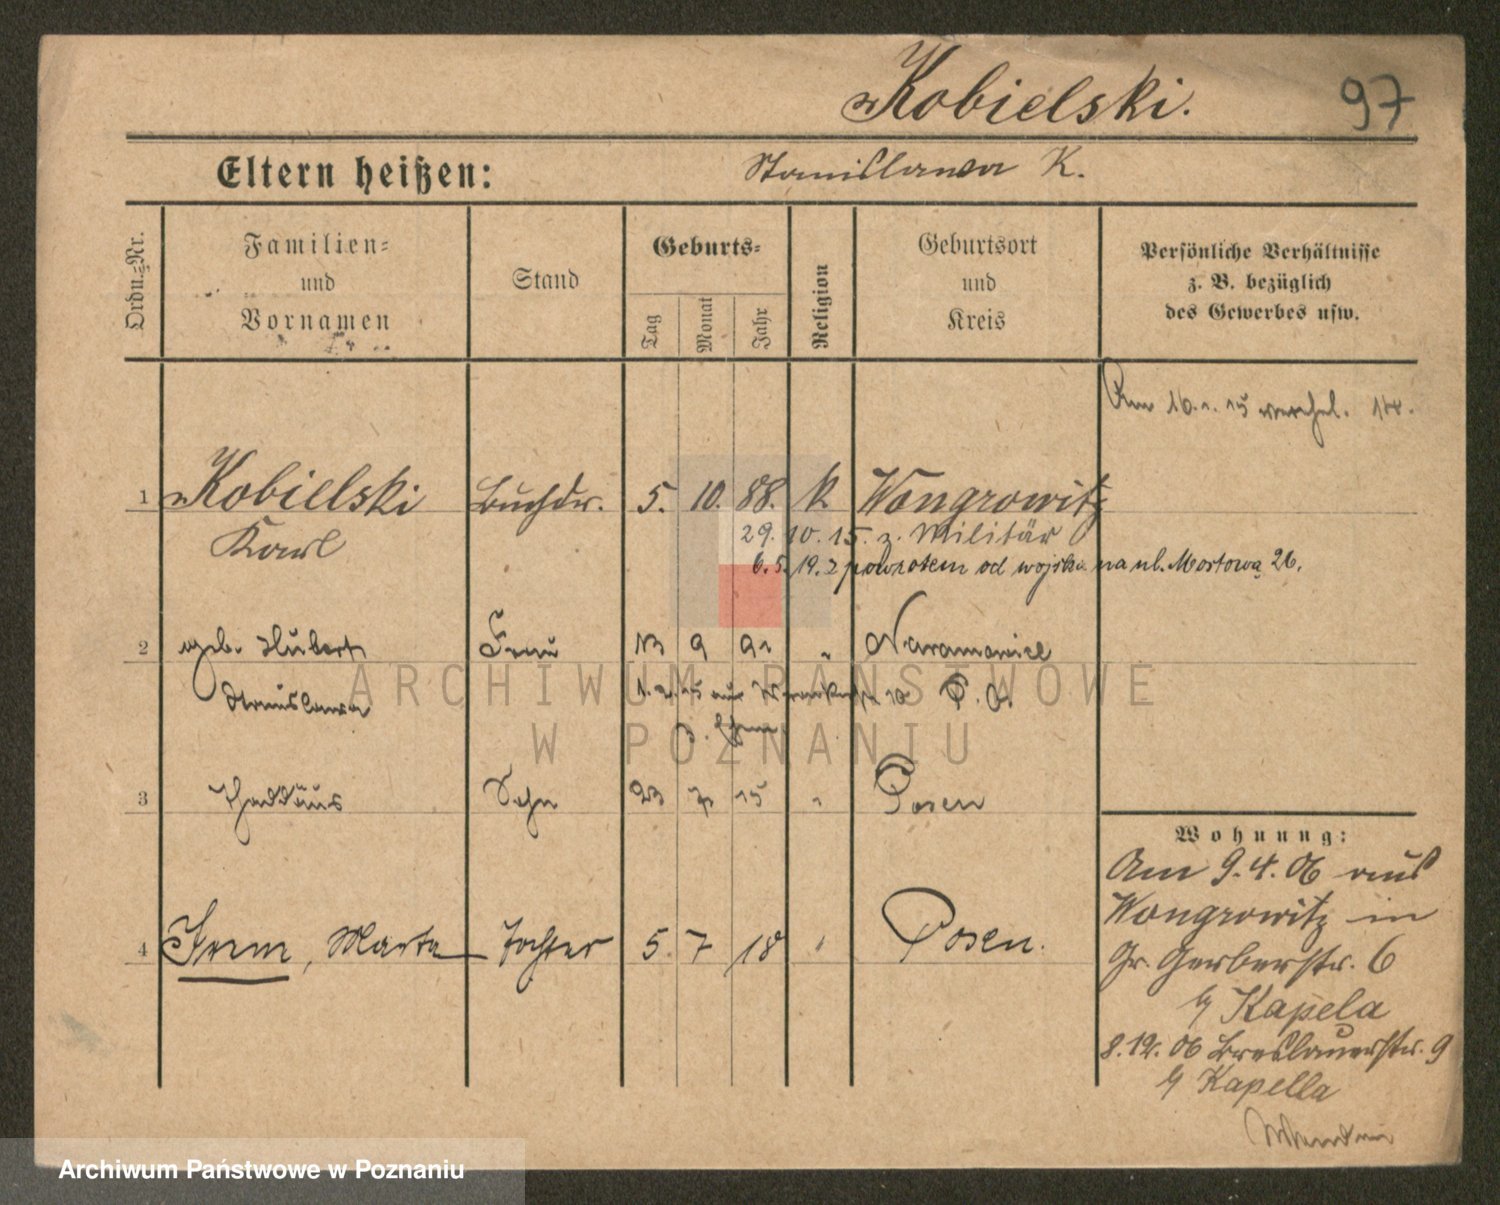 Kobielski.
97
Eltern heißen:
Stanislawa K.
Ordn.-Nr.
Familien-
und
Vornamen
Stand
Geburts-
Tag
Monat
Jahr
Religion
Geburtsort
und
Kreis
Persönliche Verhältnisse
z. B. bezüglich
des Gewerbes usw.
Am 16. 1. 15
1 Kobielski Buchdr. 5. 10. 88. k. Wongrowitz
Karl
29. 10. 15. z. Militär
6. 5. 19. z powrotem od wojska na ul. Mostową 26.
2 geb. Hubert Frau 13 9 91 " Naramowice
Stanislawa
P. O.
3 Thaddäus Sohn 23 7 15 " Posen
Wohnung:
Am 9. 4. 06 aus
Wongrowitz in
Gr. Gerberstr. 6
b/ Kapela
8. 12. 06 Breslauerstr. 9
b/ Kapella
4 Irene, Marta Tochter 5. 7 18 " Posen.
ARCHIWUM PAŃSTWOWE
W POZNANIU
Archiwum Państwowe w Poznaniu